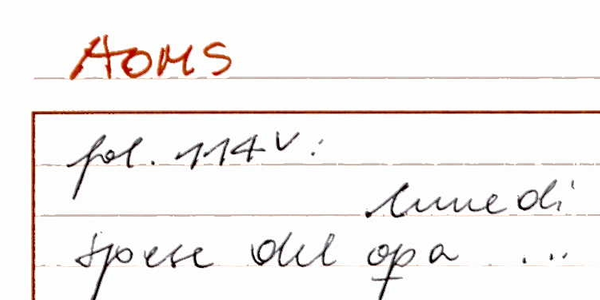 AOMS
fol. 114v:
lunedi
spese del opa ...